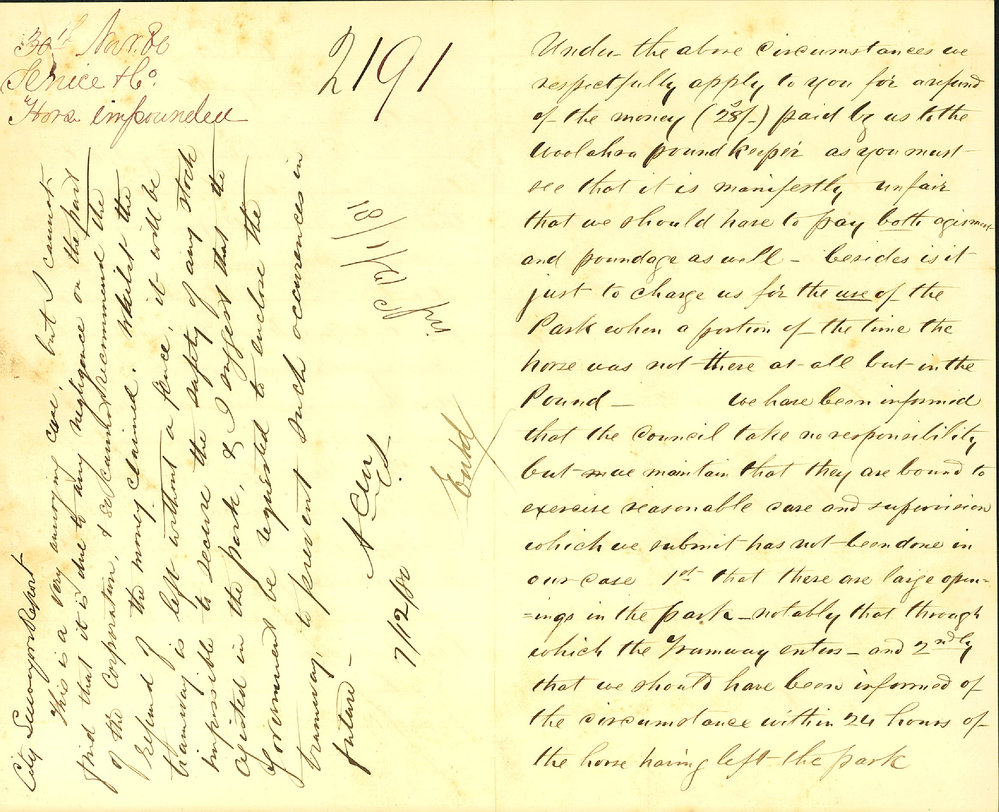 30th Novr. 80
Service & Co.
Horse impounded
2191
City Surveyors Report
This is a very annoying case but I cannot
find that it is due to any negligence on the part
of the Corporation, & recommend the
refund of the money claimed. Whilst the
tramway is left without a fence, it will be
impossible to secure the safety of any stock
agisted in the park, & I suggest that the
Government be requested to enclose the
tramway, to prevent such occurrences in
future -
A C
C S
7/12/80
18/1/81
Under the above circumstances we
respectfully apply to you for a refund
of the money (28/-) paid by us to the
Woolahra pound keeper as you must
see that it is manifestly unfair
that we should have to pay both agistment
and poundage as well - besides is it
just to charge us for the use of the
Park when a portion of the time the
horse was not there at all but in the
Pound - We have been informed
that the council take no responsibility
but we maintain that they are bound to
exercise reasonable care and supervision
which we submit has not been done in
our case 1st that there are large open-
-ings in the park - notably that through
which the Tramway enters - and 2ndly
that we should have been informed of
the circumstance within 24 hours of
the horse having left the park